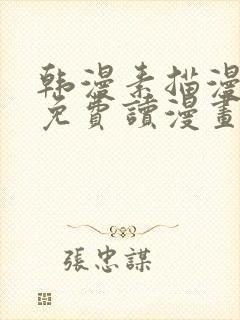 韩漫素描漫
免費讀漫畫
張忠謀